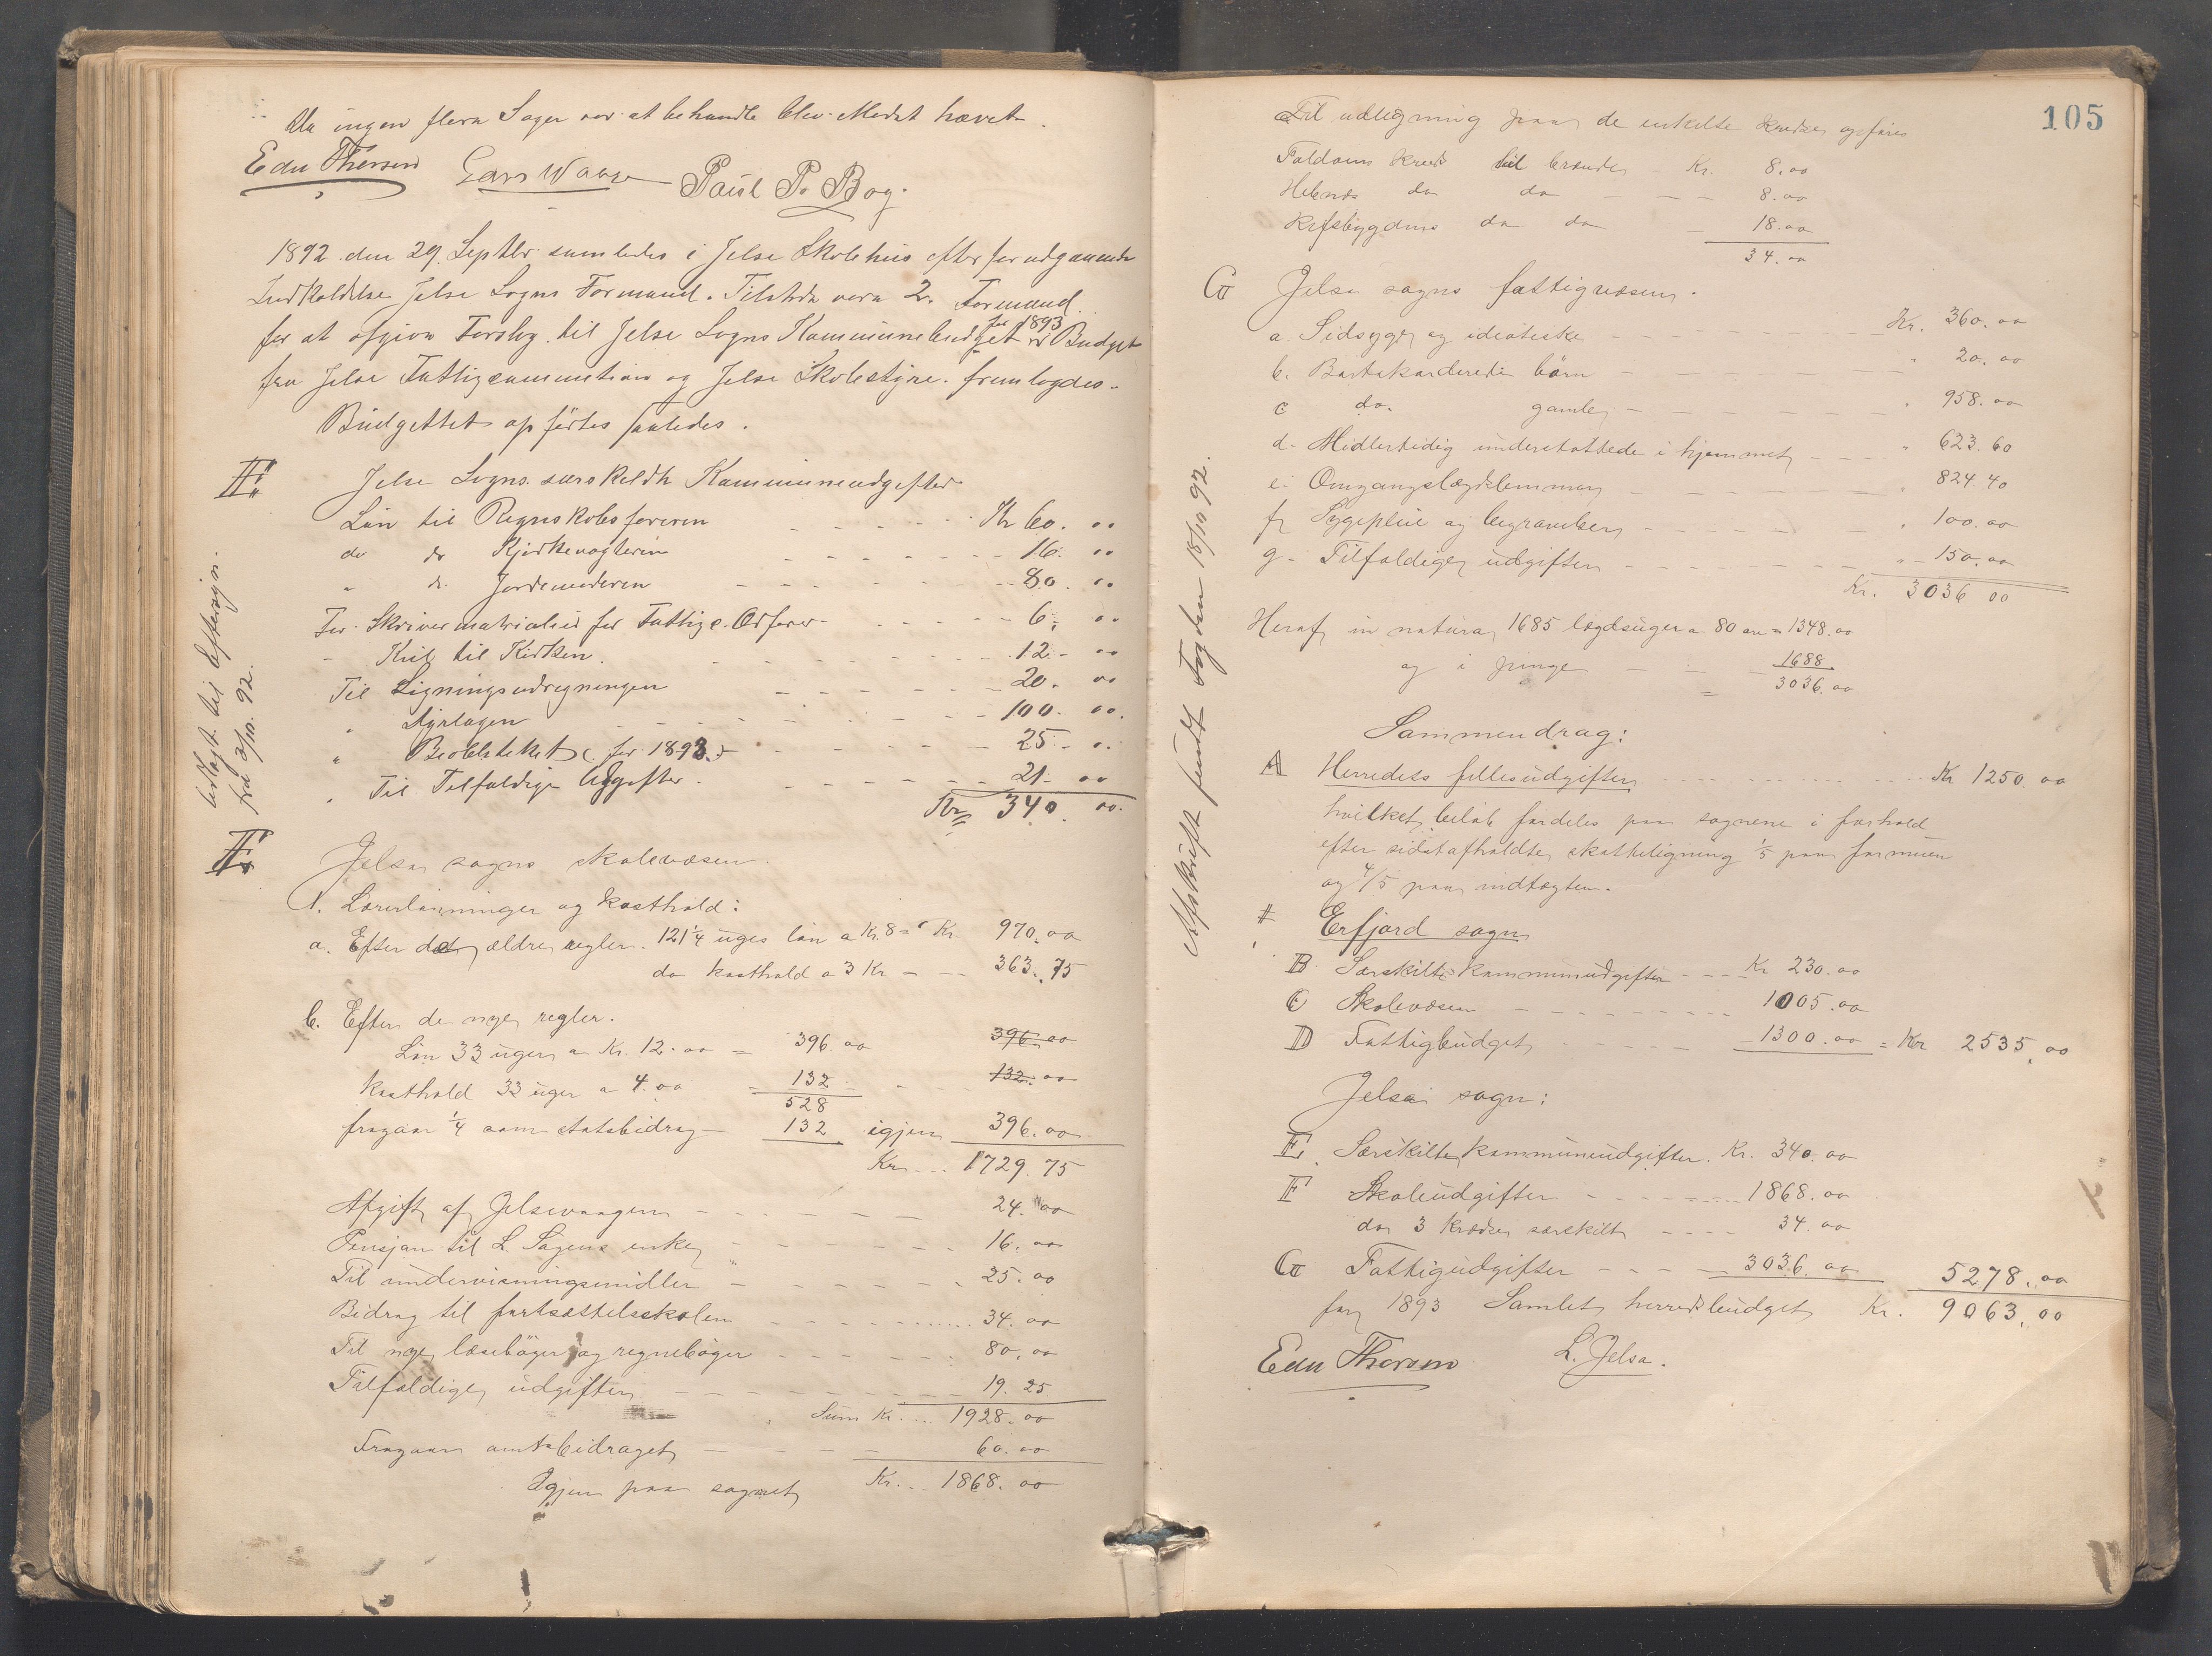 Da ingen flere Sager var at behandle blev Mødet hævet.
Edu Thorsen Lars Waage Paul P. Bog.
1892 den 29. Septbr samledes i Jelse Skolehus efter forudgaaende
Indkaldelse Jelse Sogns Formænd. Tilstede vare 2. Formænd
for at afgive Forslag til Jelse Sogns Kommunebudget for 1893 Budget
fra Jelse Fattigcommission og Jelse Skolestyre fremlagdes.
Budgettet opførtes saaledes.
E. Jelse Sogns særskildte Kommuneudgifter
Løn til Regnskabsføreren Kr 60. 00
do do Kjirkevagteren 16. 00
" do Jordemoderen 80. 00
For Skrivermatrialier for Fattig c. Ordfører 6. 00
" Kul til Kirken. 12. 00
Til Ligningsudregningen 20. 00
" Dyrlægen 100. 00.
" Beoblteket (for 1893) 25 - 00
" Til Tilfældige Udgifter. 21. 00
Kr 340. 00.
Udlagt til Eftersyn
fra 3/10. 92.
F. Jelsa sogns skolevæsen.
1. Lærerlønninger og kosthold:
a. Efter de ældre regler. 121 1/4 uges løn a Kr. 8 = Kr. 970.00
do kosthold a 3 Kr - - 363.75
b. Efter de nye regler.
Løn 33 uger a Kr. 12.00 = 396.00 396.00
Kosthold 33 uger a 4.00 = 132 - 132.00
528
fragaar 1/4 som statsbidrag 132 igjen 396.00
Kr. 1729.75
Afgift af Jelsevaagen 24.00
Pensjon til L. Sagens enke 16.00
Til undervisningsmidler 25.00
Bidrag til fortsættelsesskolen 34.00
Til nye læsebøger og regnebøger 80.00
Tilfældige udgifter 19.25
Sum Kr. 1928.00
Fragaar amtsbidraget 60.00
Igjen paa sognet Kr. 1868.00
105
Til udligning paa de enkelte kredse opføres
Foldøens kreds til brænde Kr. 8.00
Hebnes do do 8.00
Refsbygdens do do 18.00
34.00
G Jelse sogns fattigvæsen.
a. Sidsyge og ideotiske Kr. 360.00
b. Bortakorderede børn " 20.00
c do. gamle " 958.00
d. Midlertidig understøttede i hjemmet " 623.60
e. Omgangslægdslemmer " 824.40
f Sygepleie og begravelser " 100.00
g. Tilfældige udgifter " 150.00
Kr. 3036 00
Heraf in natura 1685 lægdsuger a 80 øre = 1348.00
og i penge 1688
= 3036.00
Afskrift sendt Fogden 18/10 92.
Sammendrag:
A Herredets fællesudgifter Kr 1250.00
hvilket beløb fordeles paa sognene i forhold
efter sidstafholdte skatteligning 1/5 paa formuen
og 4/5 paa indtægten.
Erfjord sogn
B Særskilte kommuneudgifter Kr 230.00
C Skolevæsen 1005.00
D Fattigbudget 1300.00 = Kr 2535.00
Jelsa sogn:
E. Særskilte kommuneudgifter. Kr. 340.00
F Skoleudgifter 1868.00
do 3 Kredse særskilt 34.00
G Fattigudgifter 3036.00 5278.00
for 1893 Samlet herredsbudget Kr. 9063.00
Edu Thorsen L. Jelsa.